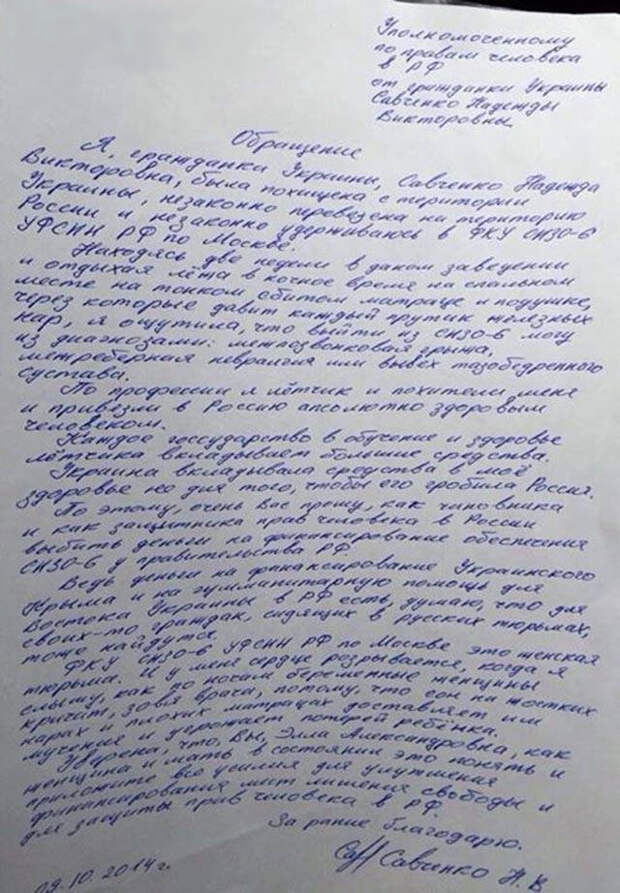 Уполномоченному
по правам человека
в РФ
от гражданки Украины
Савченко Надежды
Викторовны
Обращение
Я, гражданка Украины, Савченко Надежда
Викторовна, была похищена с територии
Украины, незаконно переведена на територию
России и незаконно удерживаюсь в ФКУ СИЗО-6
УФСИН РФ по Москве.
Находясь две недели в даном заведении
и отдыхая лёжа в ночное время на спальном
месте на тонком сбитом матраце и подушке,
через которые давит каждый прутик железных
нар, я ощутила, что выйти из СИЗО-6 могу
из диагнозами: межпозвонковая грыжа,
межреберная невралгия или вывех тазобедренного
сустава.
По профессии я лётчик и похители меня
и привезли в Россию апсолютно здоровым
человеком.
Каждое государство в обучение и здоровье
лётчика вкладывает большие средства.
Украина вкладывала средства в моё
здоровье не для того, чтобы его гробила Россия.
По этому, очень Вас прошу, как чиновника
и как защитника прав человека в России
выбить деньги на финансирование обеспечения
СИЗО-6 у правительства РФ
Ведь деньги на финансирование Украинского
Крыма и на гумманитарную помощь для
Востока Украины в РФ есть, думаю, что для
своих-то граждан, сидящих в русских тюрьмах,
тоже найдутся.
ФКУ СИЗО-6 УФСИН РФ по Москве это женская
тюрьма. И у меня сердце розрывается, когда я
слышу, как по ночам беременные женщины
кричат, зовя врача, потому, что сон на жостких
нарах и плохих матрацах доставляет им
мучение и угрожает потерей ребёнка.
Уверена, что, Вы, Элла Александровна, как
женщина и мать в состоянии это понять и
приложите все усилия для улутшения
финансирования мест лишения свободы и
для защиты прав человека в РФ.
За рание благодарю.
Савченко Н. В.
09.10.2014 г.